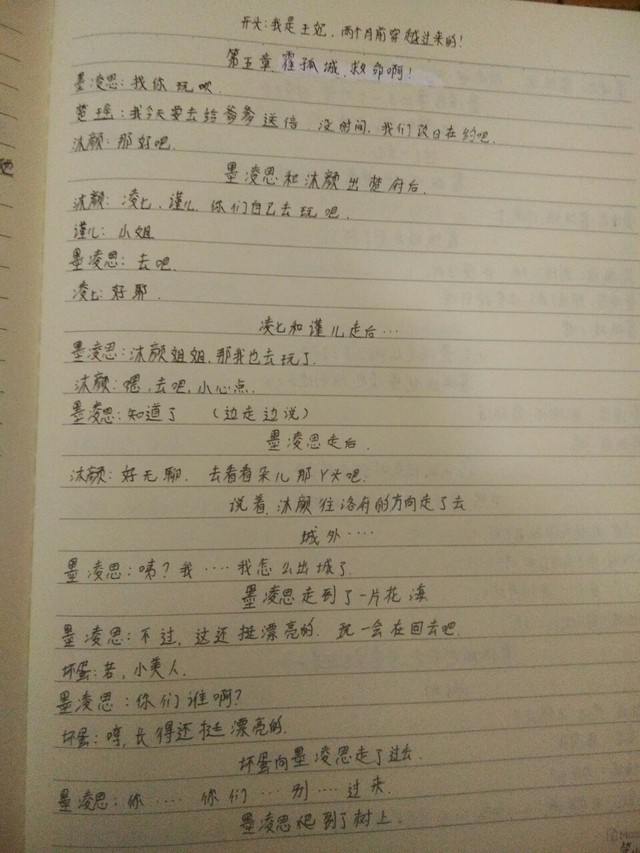 开头:我是王妃,两个月前穿越过来的!
第五章 霍孤城,救命啊!
墨凌思:找你玩呗.
楚瑶:我今天要去给爹爹送信.没时间,我们改日在约吧.
沐颜:那好吧.
墨凌思和沐颜出楚府后.
沐颜:凌七、谨儿,你们自己去玩吧.
谨儿:小姐
墨凌思:去吧.
凌七:好耶.
凌七和谨儿走后…
墨凌思:沐颜姐姐,那我也去玩了.
沐颜:嗯,去吧,小心点.
墨凌思:知道了 (边走边说)
墨凌思走后.
沐颜:好无聊. 去看看朵儿那丫头吧.
说着,沐颜往洛府的方向走了去
城外····
墨凌思:咦?我····我怎么出城了.
墨凌思走到了一片花海
墨凌思:不过,这还挺漂亮的. 玩一会在回去吧.
坏蛋:若,小美人.
墨凌思:你们谁啊?
坏蛋:哼,长得还挺漂亮的.
坏蛋向墨凌思走了过去.
墨凌思:你····· 你们···别····过来.
墨凌思爬到了树上.